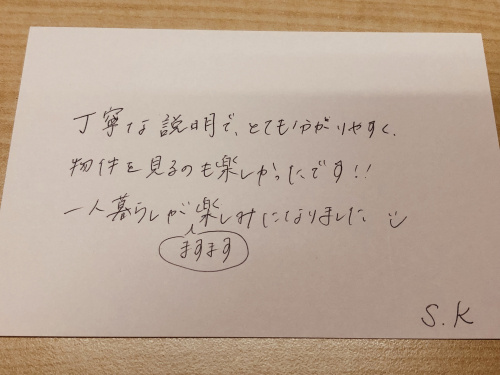 丁寧な説明で、とても分かりやすく、
物件を見るのも楽しかったです!!
一人暮らしが楽しみになりました
ますます
S.K